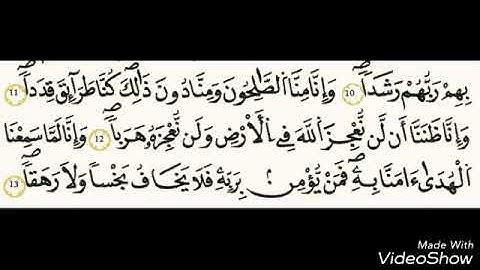 بِهِمْ رَبُّهُمْ رَشَدًا ۝10 وَاِنَّا مِنَّا الصّٰلِحُوْنَ وَمِنَّا دُوْنَ ذٰلِكَۗ كُنَّا طَرَاۤىِٕقَ قِدَدًاۙ ۝11
وَاِنَّا ظَنَنَّا اَنْ لَّنْ نُّعْجِزَ اللّٰهَ فِى الْاَرْضِ وَلَنْ نُّعْجِزَهٗ هَرَبًاۙ ۝12 وَاِنَّا لَمَّا سَمِعْنَا
الْهُدٰىٓ ءَامَنَّا بِهٖۗ فَمَنْ يُّؤْمِنْۢ بِرَبِّهٖ فَلَا يَخَافُ بَخْسًا وَّلَا رَهَقًاۙ ۝13
Made With
VideoShow